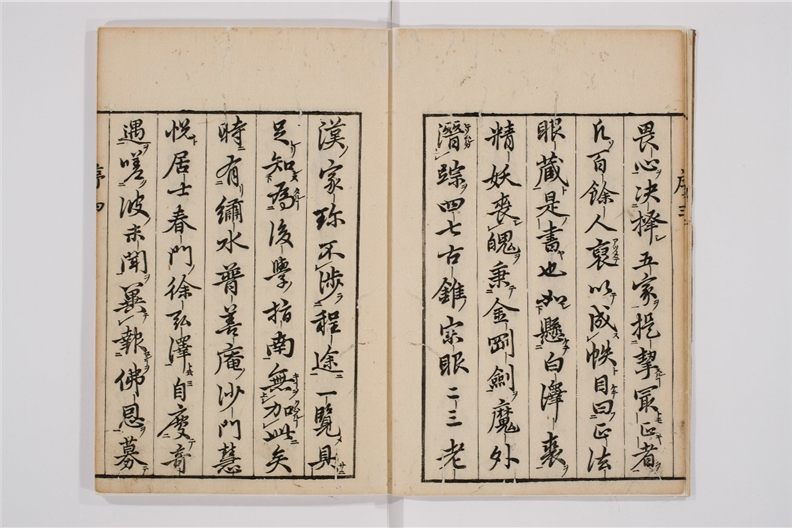 序三
畏心決擇五家提挈冣正者
凡百餘人裒以成帙目曰正法
眼藏是書也如懸白澤裘
精妖喪魄秉金剛劍魔外
潛踪四七古錐宗眼二三老
漢家珎不涉程途一覽具
足知為後學指南無加此矣
時有繡水普善庵沙門慧
悅居士春門徐弘澤自慶奇
遇嗟彼未聞異報佛恩募
序四